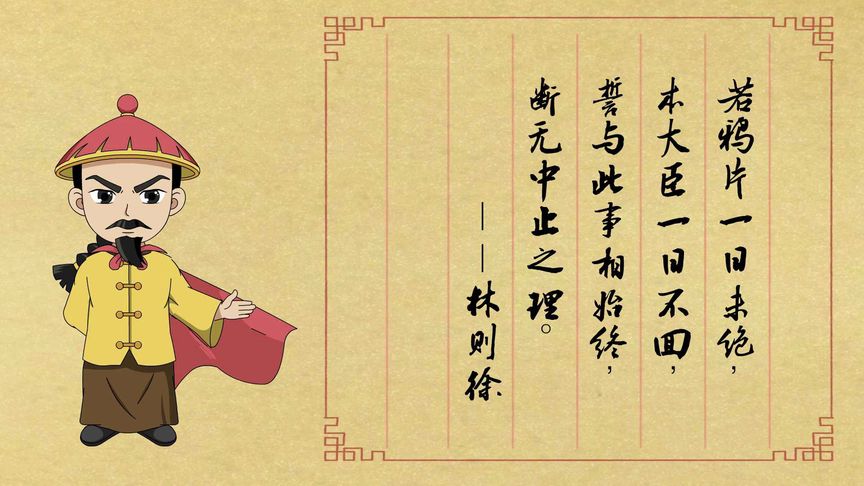 若鸦片一日未绝，
本大臣一日不回，
誓与此事相始终，
断无中止之理。
——林则徐